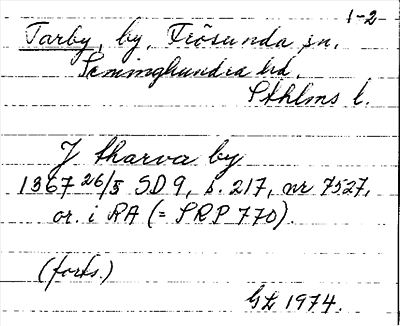 1-2-
Tarby, by, Frösunda sn.
Seminghundra hd.
Sthlms l.
J tharva by
1367 26/5 SD 9, s. 217, nr 7527,
or. i RA (= SRP 770).
(forts.)
1974.